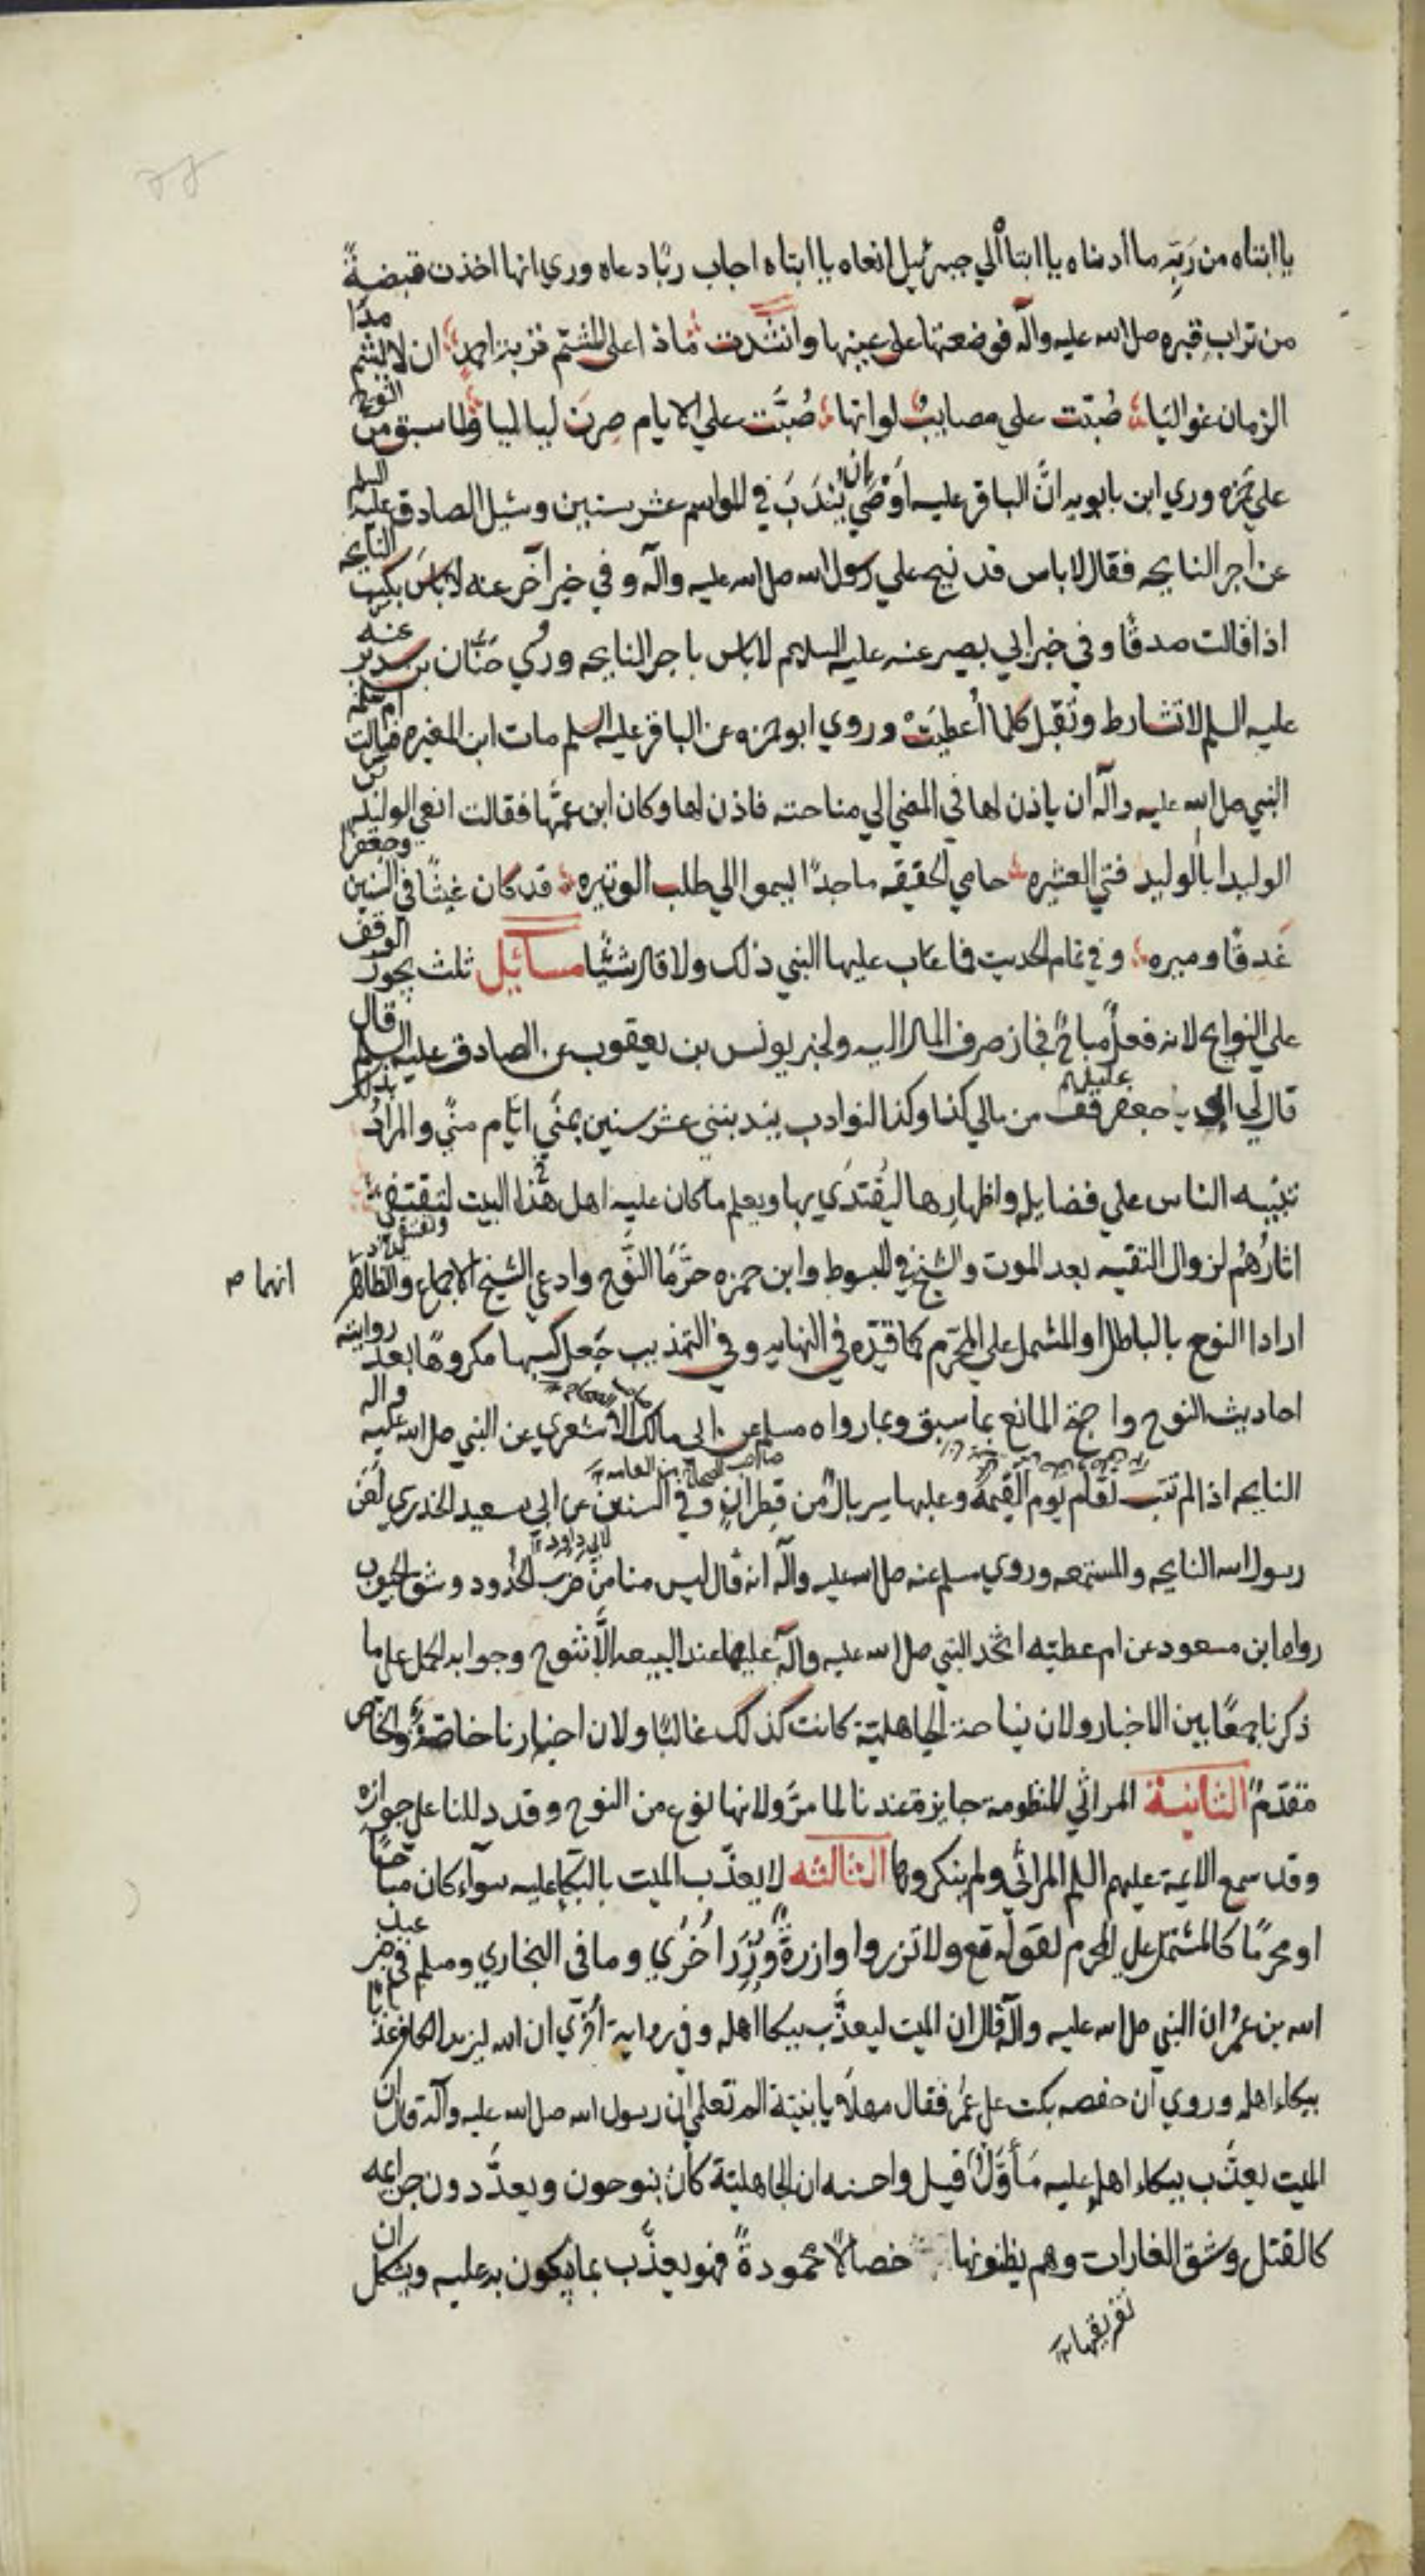 يا ابتاه من ربه ما ادناه يا ابتاه الي جبرئيل انعاه يا ابتاه اجاب ربًا دعاه وروي انها اخذت قبضةً
من تراب قبره صلى الله عليه وآله فوضعتها على عينيها وانشدت ماذا على المشتم تربة احمد ان لا يشم مدا
الزمان غواليا صُبّت علي مصايبُ لو انها صُبّت علي الايام صرن لياليا ولما سبق من النوح
علي حمزه وروي ابن بابويه انَّ الباقر عليه اوصَي بان يُندَبَ في المواسم عشر سنين وسئل الصادق عليه السلم
عن اجر النايحه فقال لا باس قد نيح علي رسول الله صلى الله عليه وآله و في خبر آخر عنه لا باسَ بكسب النايحه
اذا قالت صدقًا و في خبر ابي بصير عنه عليه السلام لا باس باجر النايحه ورُوي حنّان بن سدير عنه
عليه السلم لا تشارط وتقبل كلما اُعطيَتْ وروي ابو حمزه عن الباقر عليه السلم مات ابن المغيره فقالت ام سلمه
النبي صلى الله عليه وآله ان ياذن لها في المضي الي مناحته فاذن لها وكان ابن عمّها فقالت انعي الوليد بن
الوليد ابا الوليد فتي العشيره حامي الحقيقه ماجدًا يسموا الي طلب الوتيره قد كان غيثًا في السنين وجعفرا
غَدِقًا وميره و في تمام الحديث فما عاب عليها النبي ذلك ولا قال شيئًا مسائيل ثلث يجوز الوقف
علي النوايح لانه فعلٌ مباحٌ فجاز صرف المال اليه ولخبر يونس بن يعقوب عن الصادق عليه السلم قال
قال لي ابي يا جعفر قف من مالي كذا وكذا لنوادب يندبنني عشر سنين بمني ايّام مني والمراد بذلك
تنبيه الناس علي فضايله واظهارها ليُقتدَي بها ويعلم ما كان عليه اهل هذا البيت لتقتفي
اثارُهُم لزوال التقيه بعد الموت والشيخ في المبسوط وابن حمزه حرَّما النَّوح وادعي الشيخ الاجماع والظاهر
انهما صح
ارادا النوح بالباطل او المشتمل علي المحرّم كما قيّده في النهايه و في التهذيب جَعل كسبها مكروهًا بعد روايته
احاديث النوح واحتج المانع بما سبق وبما رواه مسلم عن ابي مالك الاشعري عن النبي صلى الله عليه وآله
النايحه اذا لم تتب تقام يوم القيمة وعليها سربالٌ من قطران وفي السنن عن ابي سعيد الخدري لعن
صاحب الصحاح من العامه
لابي داود
رسول الله النايحه والمستمعه وروي مسلم عنه صلى الله عليه وآله انه قال ليس منا من ضرب الخدود وشق الجيوب
رواه ابن مسعود عن ام عطيّه اخذ النبي صلى الله عليه وآله عليها عند البيعه الّا ننوح وجوابه الحمل على ما
ذكرنا جمعًا بين الاخبار ولان نياحة الجاهليّة كانت كذلك غالبًا ولان اخبارنا خاصّةٌ والخاص
مقدّمٌ الثانية المراثي المنظومة جايزة عندنا لما مرّ ولانها نوع من النوح وقد دللنا على جوازه
وقد سمع الائمة عليهم السلم المراثي ولم ينكروها الثالثه لا يعذّب الميت بالبكاء عليه سوآء كان مباحًا
او محرّمًا كالمشتمل على المحرم لقوله تع ولا تزروا وازرةٌ وِزْرَ اُخرَي و ما في البخاري ومسلم في خبر عبد
الله بن عمر ان النبي صلى الله عليه وآله قال ان الميت ليعذَّب ببكاء اهله و في رواية اخري ان الله ليزيد الكافر عذابًا
ببكاء اهله وروي ان حفصه بكت على عُمَر فقال مهلًا يا بنيّة الم تعلمي ان رسول الله صلى الله عليه وآله قال ان
الميت يعذّب ببكاء اهله عليه مَأوّلٌ قيل واحسنه ان الجاهليّة كان ينوحون ويعدّدون جرايمه
كالقتل وشق الغارات وهم يظنونها خصالًا محمودةً فهو يعذّب بما يبكون به عليه ويشكل ان
تفريقها